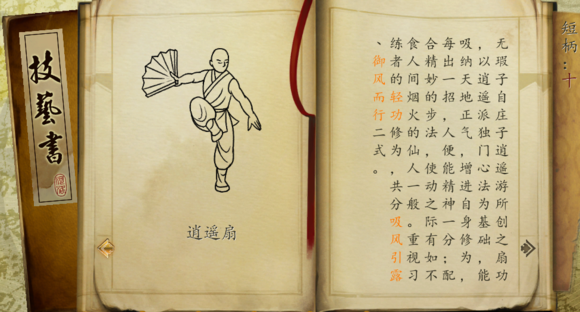 技藝書
逍遥扇
无瑕子自庄子逍遥游所创之扇功
，以逍遥派独门心法为基础，能
吸纳天地正气，增进自身修为，
每出一招，人便能精神一分；配
合精妙的步法，使动之际有如不
食人间烟火的仙人一般。重视习
练者的轻功修为，共分吸风引露
、御风而行二式。
短柄：十